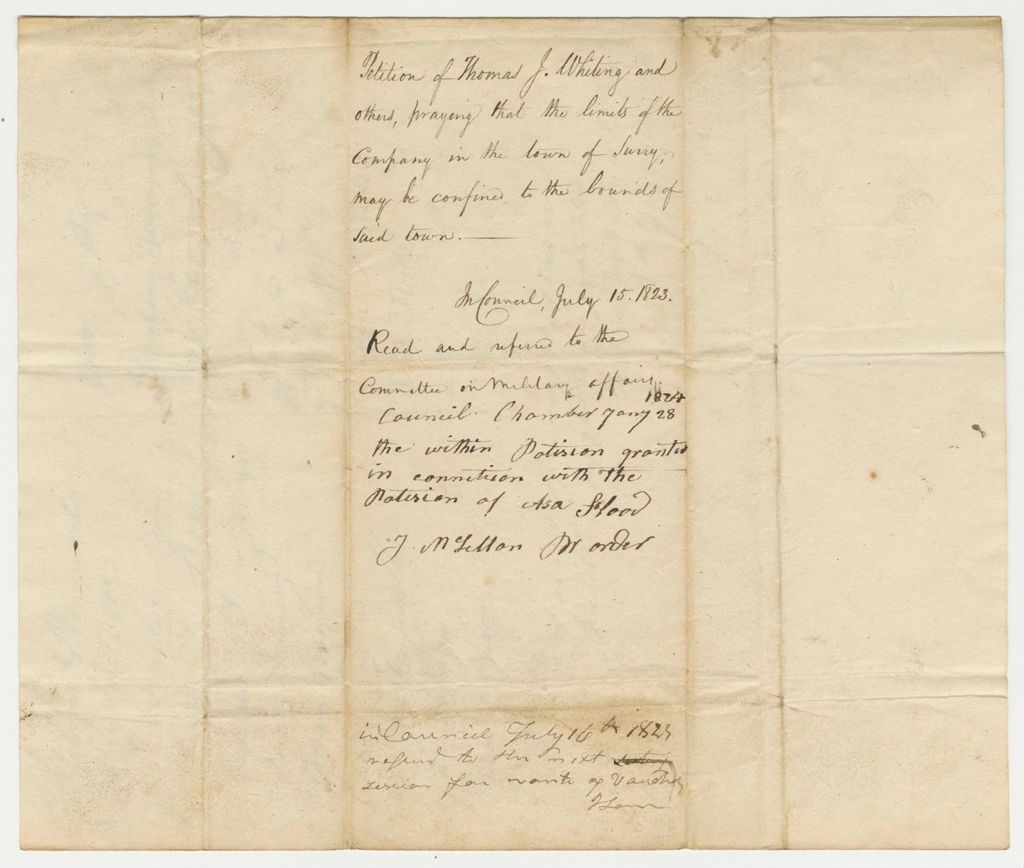 Petition of Thomas J. Whiting and
others, praying that the limits of the
Company in the town of Surry,
may be confined to the bounds of
said town.
In Council, July 15. 1823.
Read and referred to the
Committee on Military affairs.
1824
Council Chamber Jany 28
the within Patision granted
in connition with the
Patision of Asa Flood
J. McLellan Pr order
in Council July 16th 1823
referd to the next
session for want of